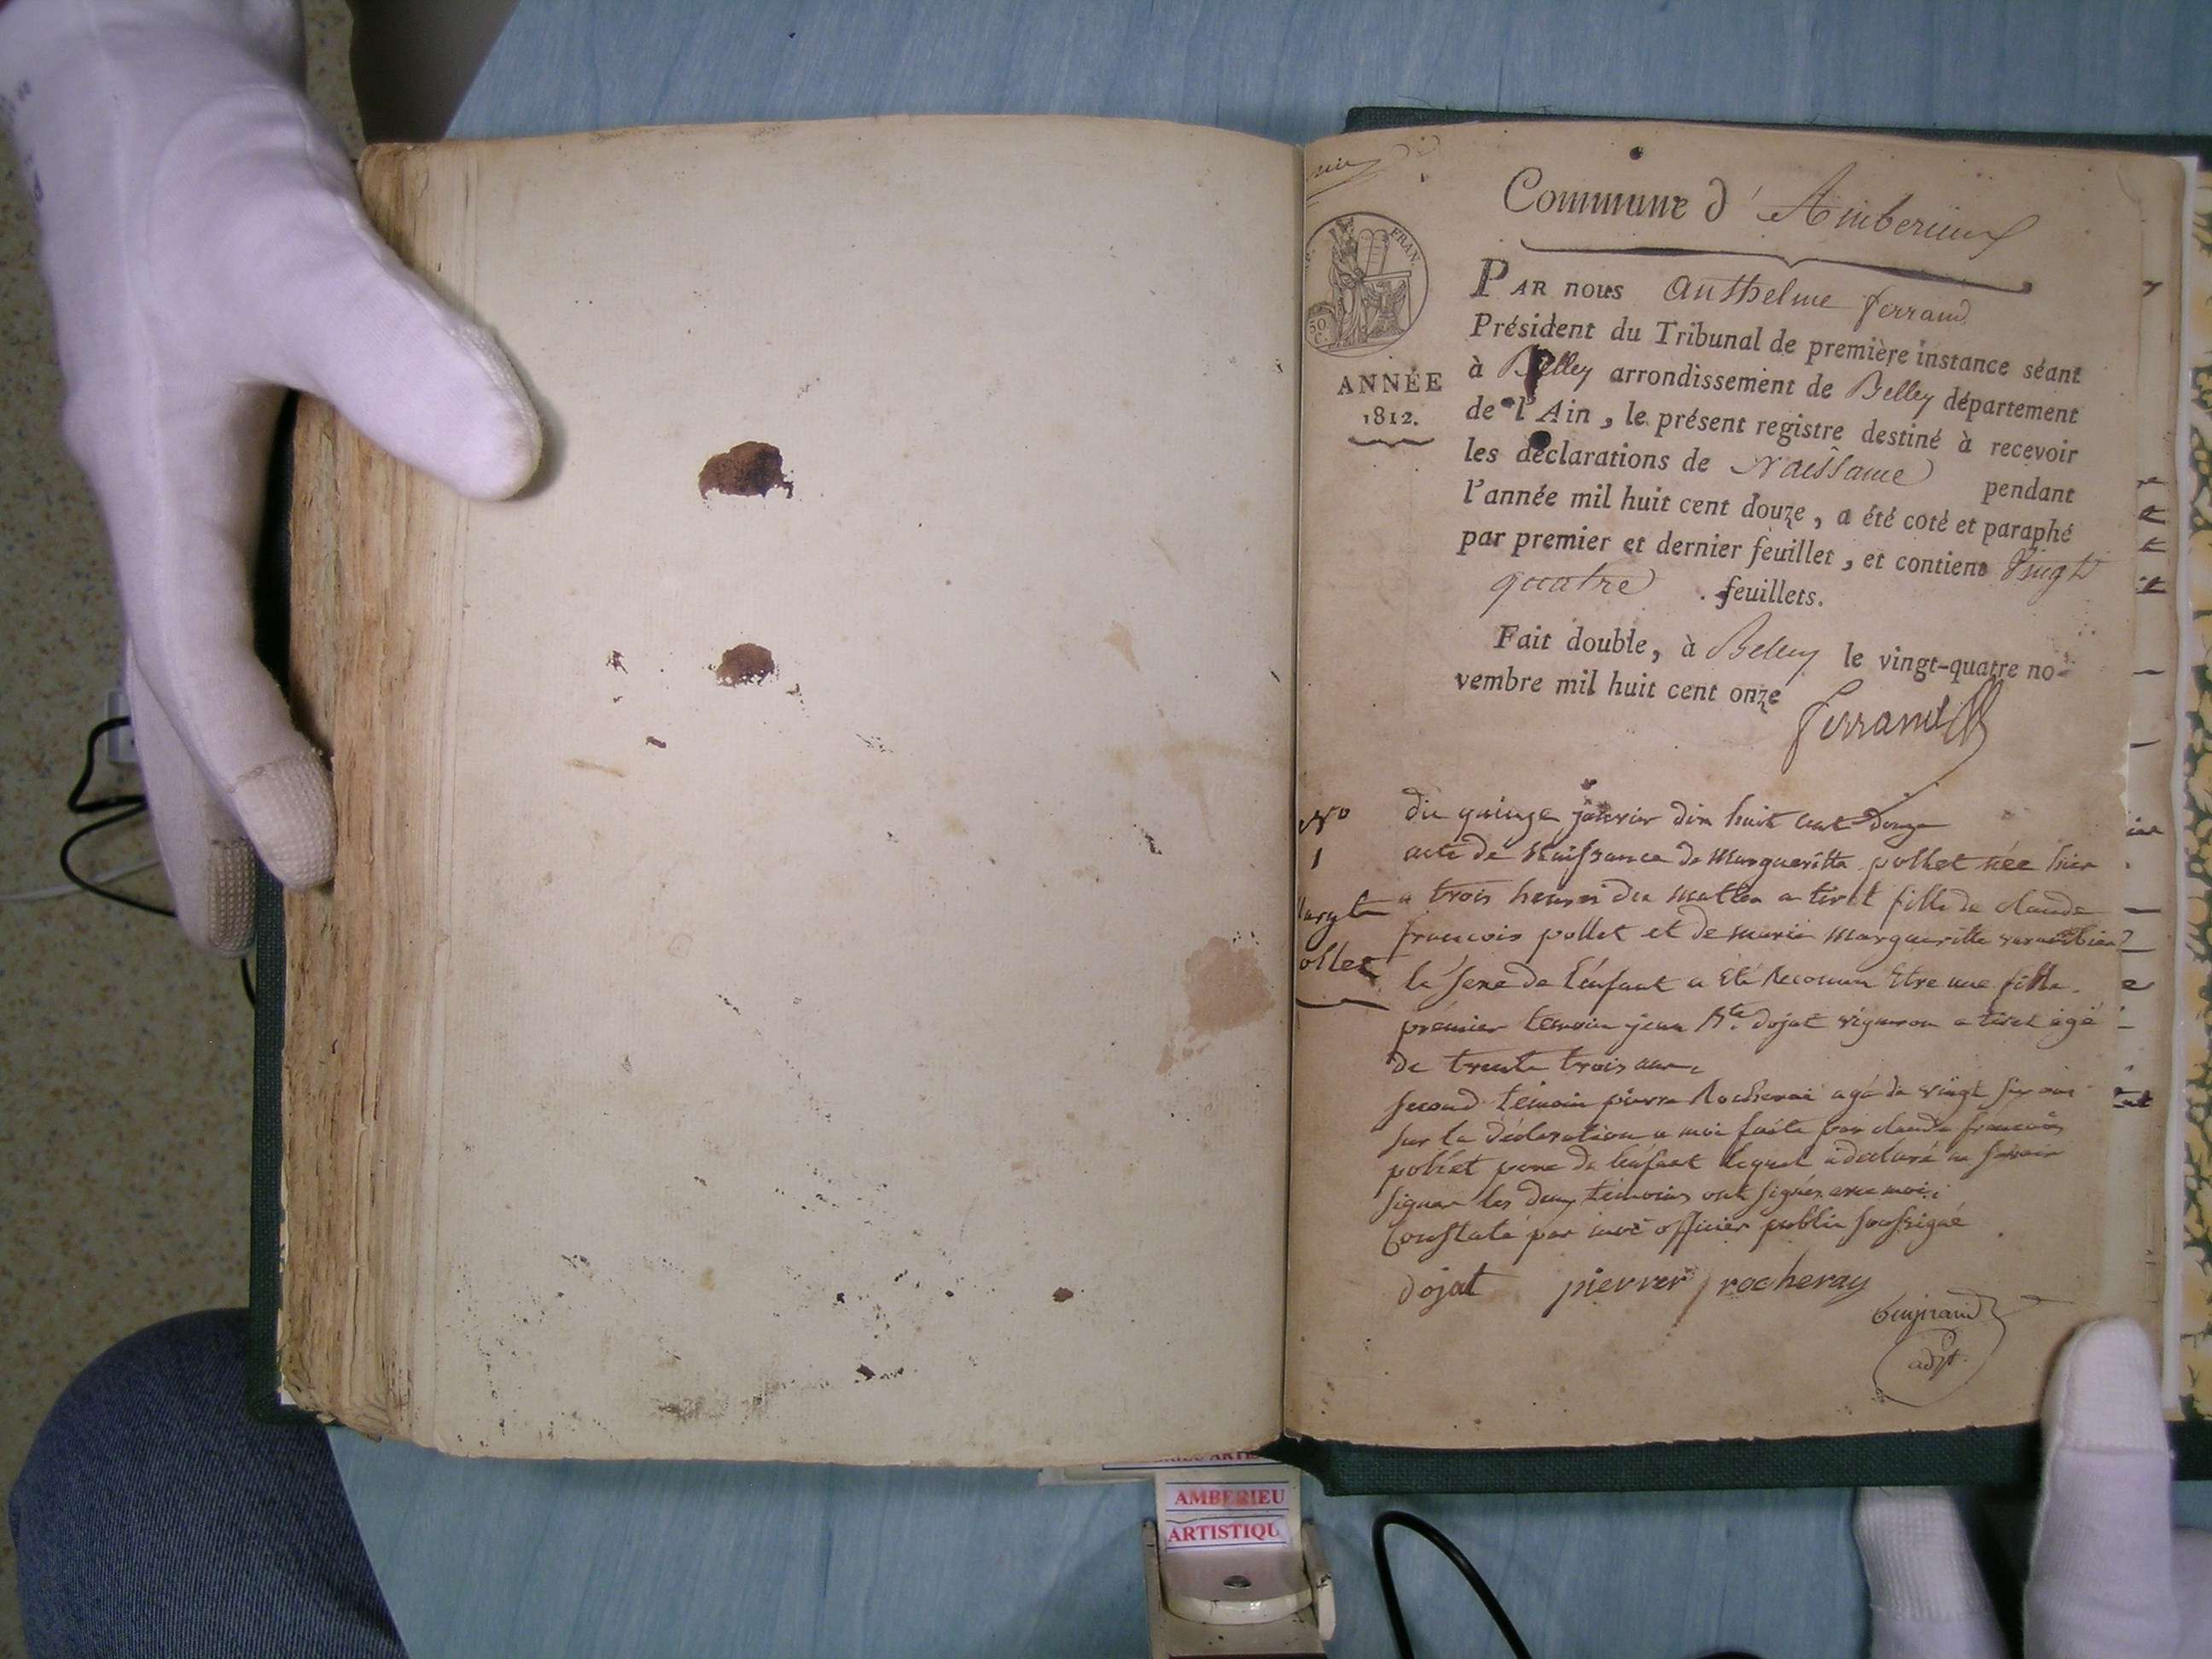 Commune d' Amberieux
PAR nous Anthelme ferrand
Président du Tribunal de première instance séant
à Belley arrondissement de Belley département
de l'Ain, le présent registre destiné à recevoir
les déclarations de Naissance pendant
l'année mil huit cent douze, a été coté et paraphé
par premier et dernier feuillet, et contient Vingt
quatre feuillets.
Fait double, à Belley le vingt-quatre no-
vembre mil huit cent onze
ferrand
FRAN.
50
C.
ANNÉE
1812.
No
1
argte
ollet
du quinze janvier dix huit cent douze
acte de naissance de Margueritte pollet née hier
a trois heures du matin a tiret fille de claude
francois pollet et de marie margueritte
le sexe de l'enfant a été reconnu être une fille.
premier temoin jean Bte. dojat vigneron a tiret agé
de trente trois ans
second temoin pierre Rocherai agé de vingt six ans
sur la déclaration a moi faite par claude francois
pollet pere de l'enfant lequel a déclaré ne savoir
signer les deux témoins ont signés avec moi
Constaté par moi officier public soussigné
dojat pierrer rocheray
adjt.
AMBERIEU
ARTISTIQU